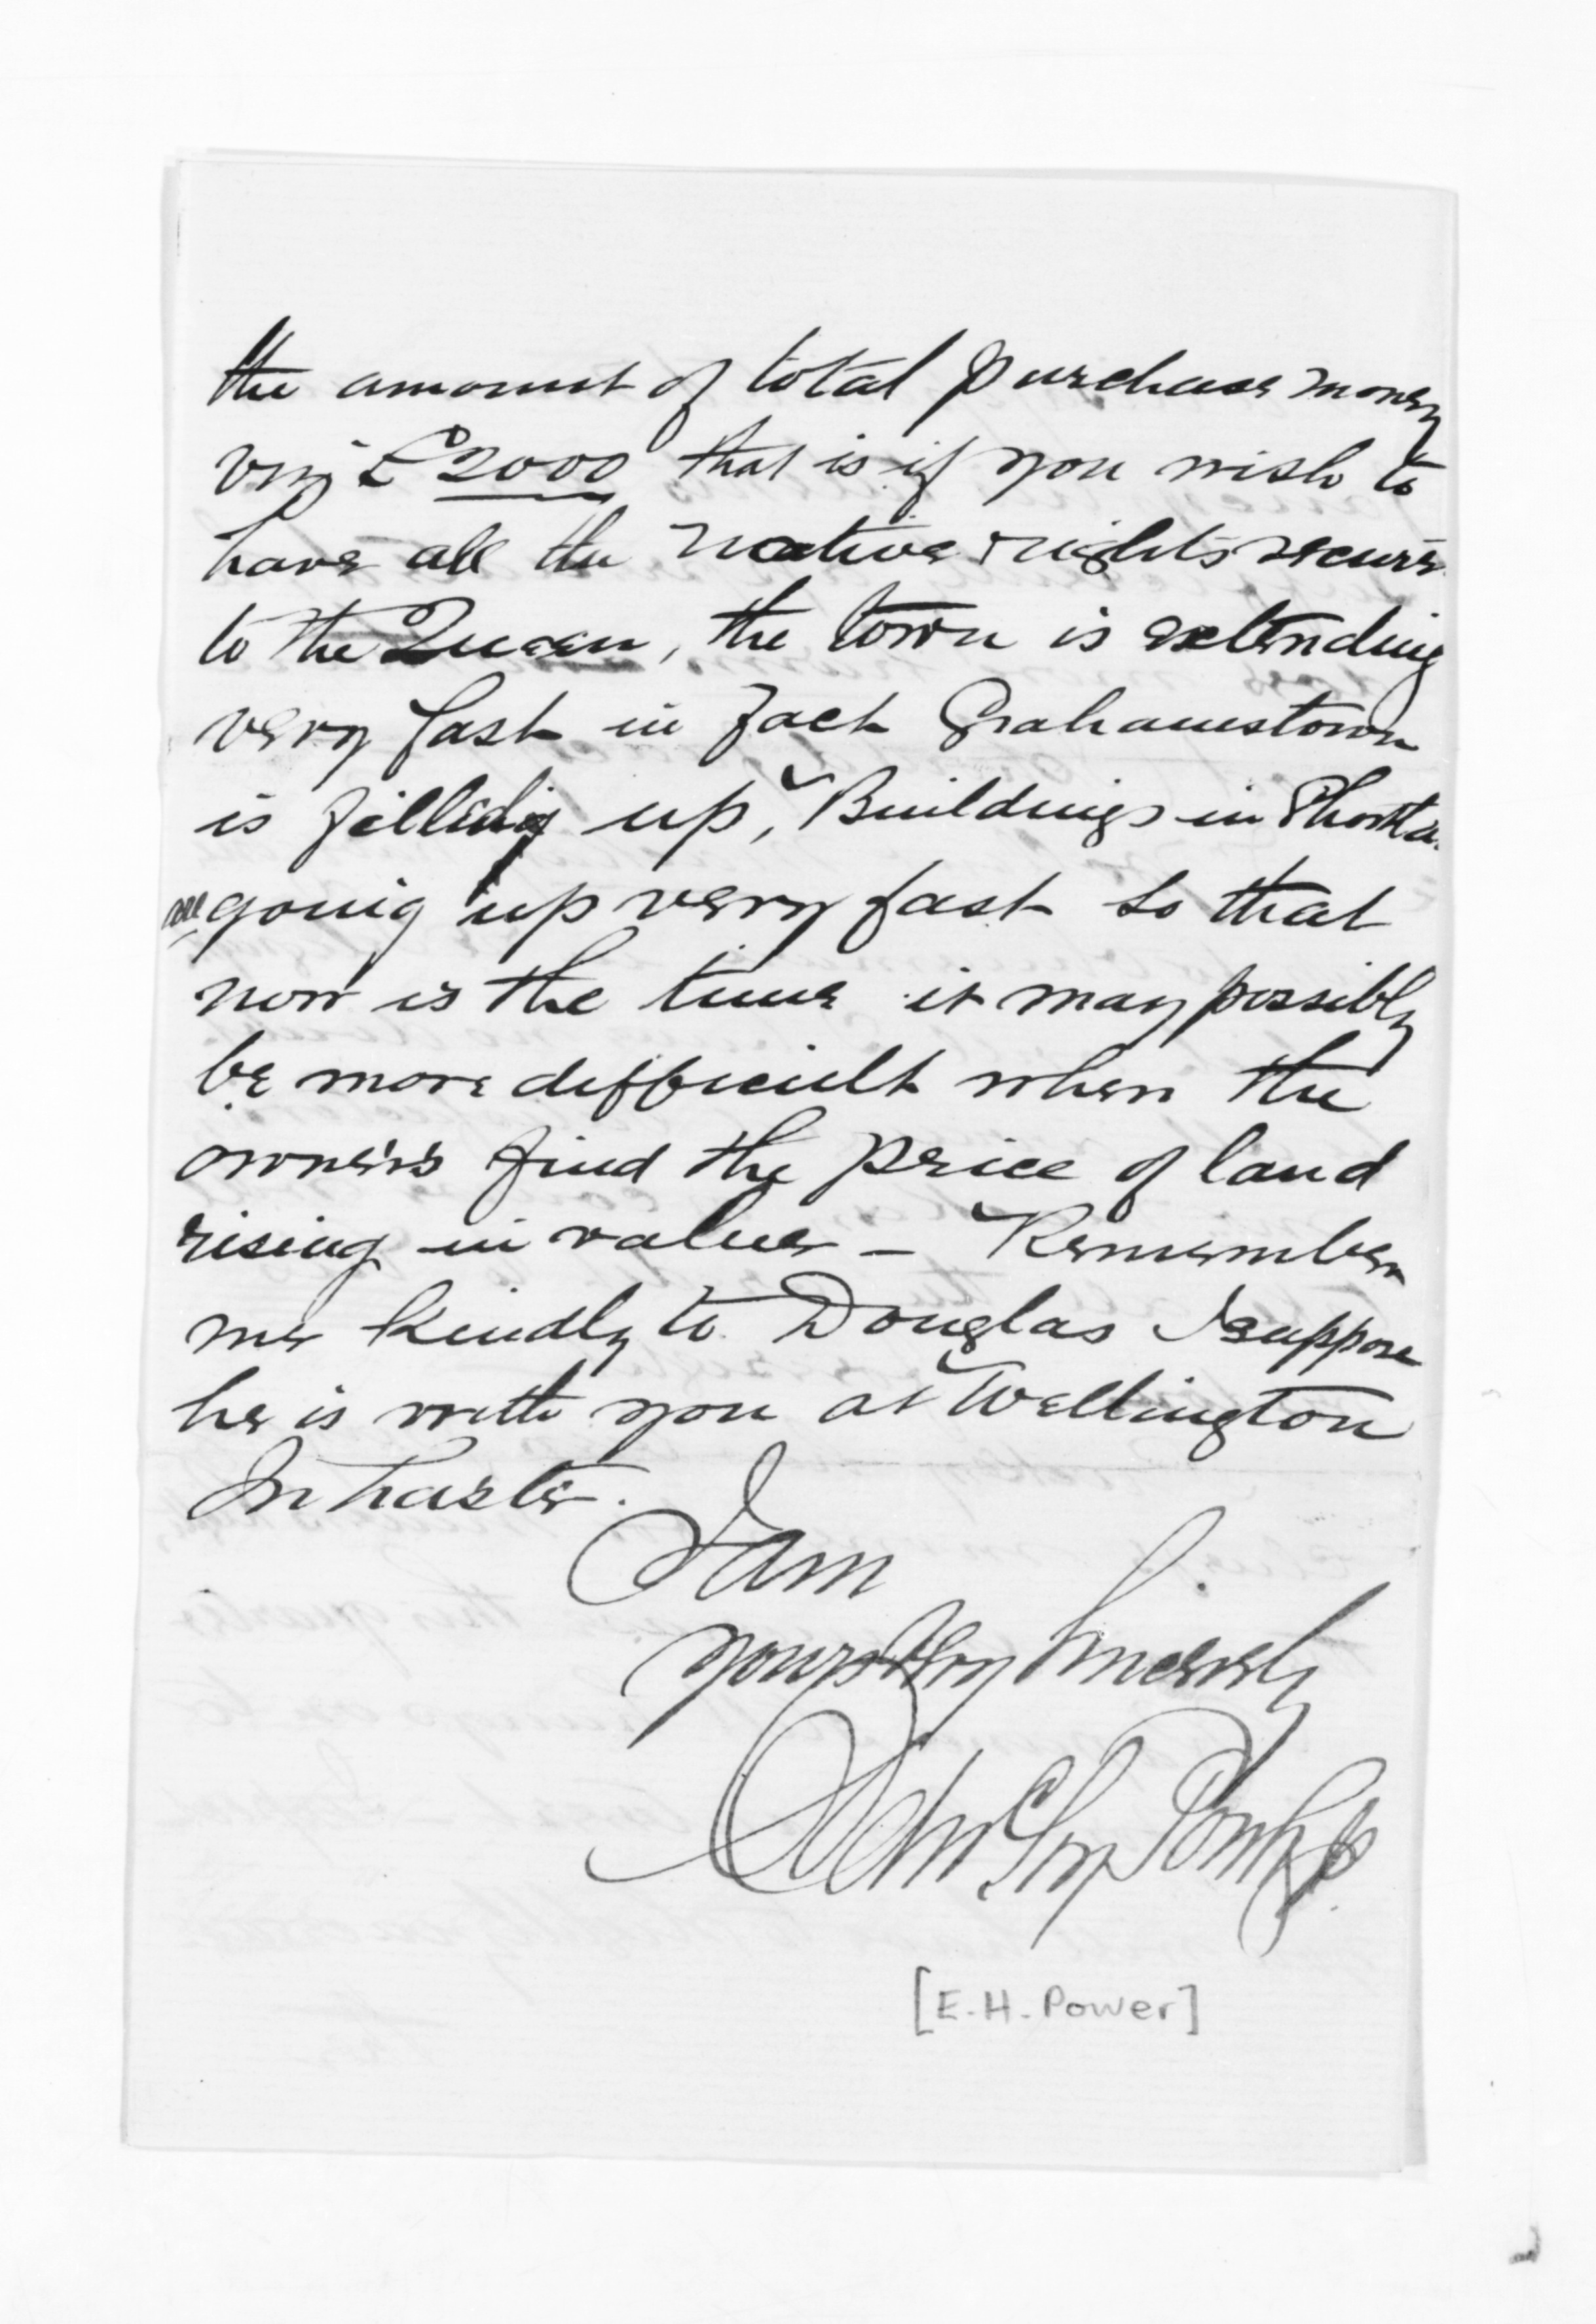 the amount of total purchase money
viz £2000 that is if you wish to
have all the native rights secure
to the Queen, the town is extending
very fast in fact Grahamstown
is filling up, Buildings in Shorta.
are going up very fast so that
now is the time it may possibly
be more difficult when the
owners find the price of land
rising in value - Remember
me kindly to Douglas I suppose
he is with you at Wellington
In haste.
I am
yours very sincerely
[E.H. Power]